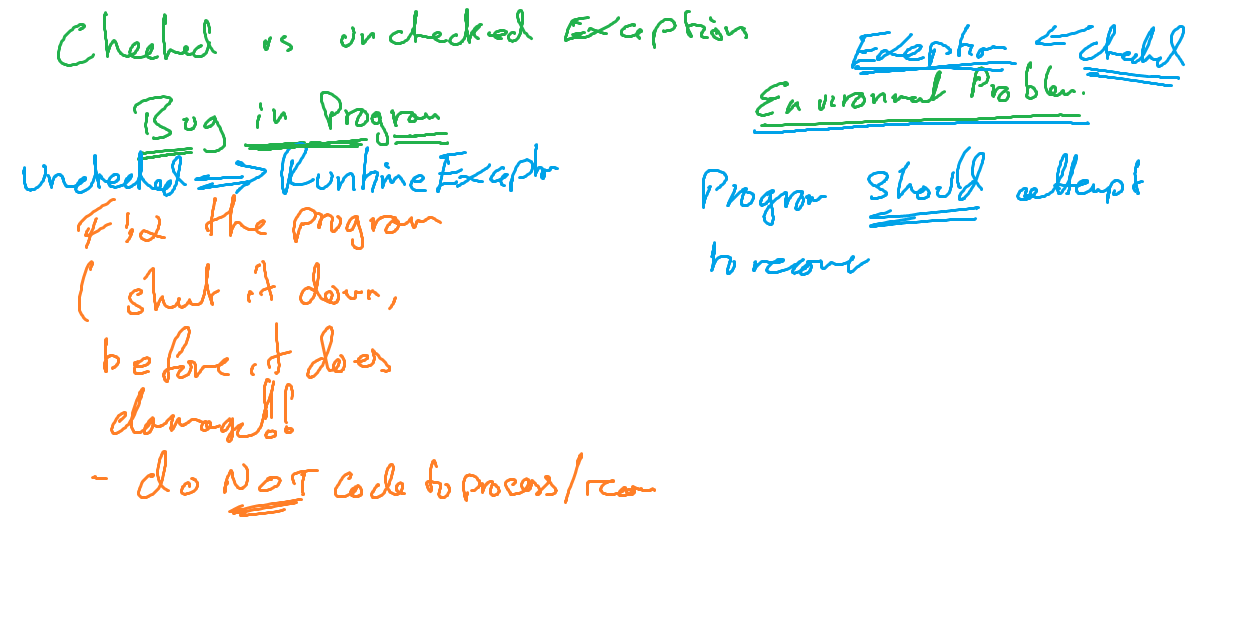 Checked vs unchecked Exception
Bug in Program
unchecked => RuntimeException
Fix the program
( shut it down,
before it does
damage!!
- do NOT code to process/recover
Exception <= checked
Environment Problem.
Program should attempt
to recover